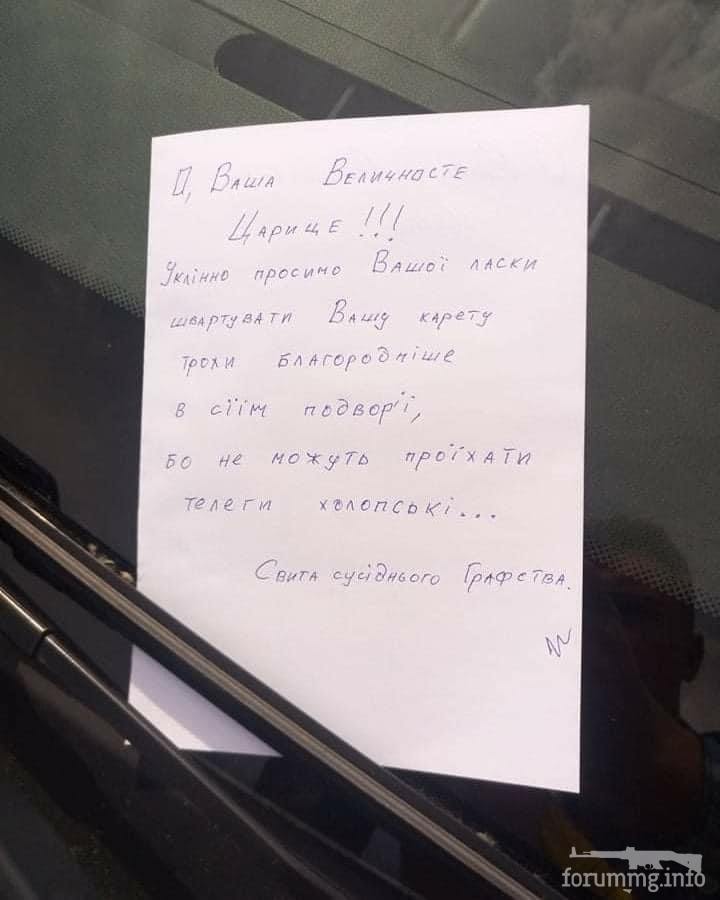 О, Ваша Величносте
Царице!!!
Уклінно просимо Вашої ласки
швартувати Вашу карету
трохи благородніше
в сіїм подвор'ї,
бо не можуть проїхати
телеги холопські...
Свита сусіднього Графства.
forummg.info